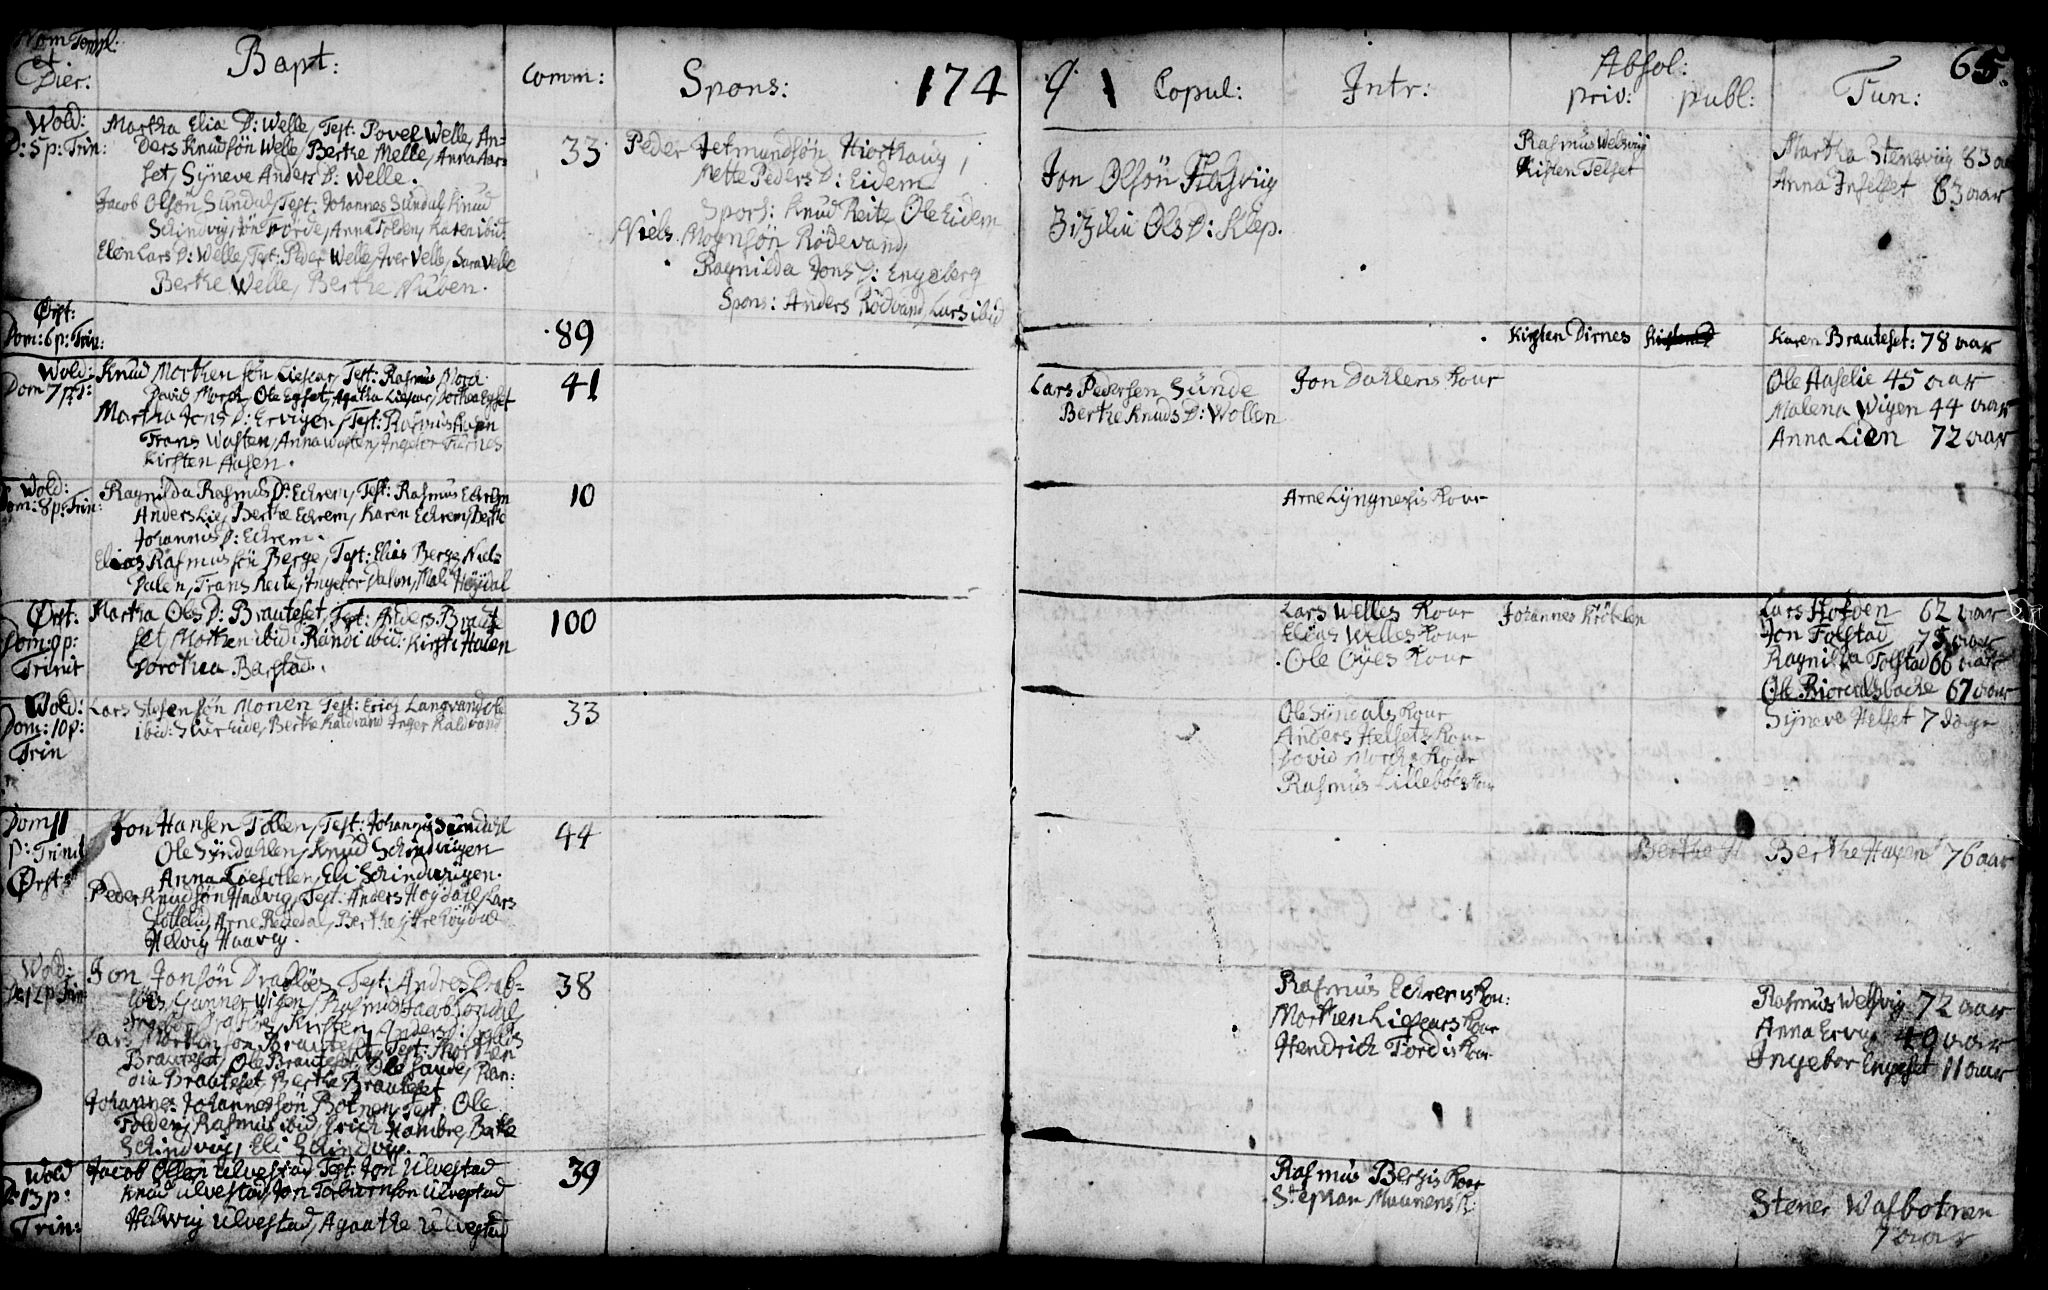 Nom Templ:
et
Dier:
Bapt:
Comm:
Spons:
174
9
Copul:
Intr:
Absol:
priv:
publ:
Fun:
65.
Wold:
D: 5 p: Trin:
Martha Eliæ D: Welle, Test: Povel Welle, An-
ders Knudsøn Welle, Berthe Melle, Anna Aar-
set, Syneve Anders D: Welle.
Jacob Olsøn Sundal, Test: Johannes Sundal, Knud
Schindvig, Jøn Førde, Anna Folden, Karen ibid.
Elen Lars D: Welle, Test: Peder Welle, Iver Velle, Sara Velle
Berthe Welle, Berthe
33
Peder Jetmundsøn Hiorthaug,
Mette Peders D: Eidem
Spons: Knud Reite Ole Eidem
Niels Mognsøn Rødevand,
Ragnilda Jons D: Engeberg
Spons: Anders Rødvand, Lars ibid
Jon Olsøn
Zitzilia Ols D: Klep.
Rasmus Welsviig
Kisten Telset
Martha Stensviig 83 aar
Anna 63 aar
Ørst:
Dom: 6 p: Trin:
89
Kirsten Dirnes
Karen Brauteset: 78 aar
Wold:
Dom 7 p: T:
Knud Morthensøn Liessar, Test: Rasmus Morch
David Morch, Ole Egset, Agatha Liessar, Dorthe Egset
Martha Jons D: Ervigen, Test: Rasmus Aasen
Frans Wasten, Anna Wasten, Ingebor Furnes
Kirsten Aasen.
41
Lars Pedersen Sunde
Berthe Knuds D: Wollen
Jon Dahlens Kour
Ole Haselie 45 aar
Malena Wigen 44 aar
Anna Liden 72 aar
Wold:
Dom: 8 p: Trin:
Ragnilda Rasmus D: Echrem, Test: Rasmus Echrem
Anders Lie, Berthe Echrem, Karen Echrem, Berthe
Johannis D: Echrem.
Elias Rasmussøn Berge, Test: Elias Berge, Niels
Dalen, Frans Reite, Ingebor Dalen, Mali Høydal
10
Arne Lyngnesis Kour
Ørst:
Dom: 9 p:
Trinit
Martha Ols D: Brauteset, Test: Anders Braute
set, Morthen ibid: Randi ibid: Kirsti Halen
Dorothea Barstad.
100
Lars Welles Kour
Elias Welles Kour
Ole Oÿes Kour
Johannes Kribelen
Lars Hofden 62 aar
Jon Folstad 75 aar
Ragnilda Folstad 66 aar
Ole 67 aar
Wold:
Dom: 10 p:
Trin
Lars Stefensøn Morken Test: Erich Langvand, Ole
ibid: Siver Eide, Berthe Kaldvand Inger Kaldvand
33
Ole Sundals Kour
Anders Helsets Kour
David Morchs Kour
Rasmus Lilleboes Kour
Syneve Helset 7 dage
Dom 11
p: Trinit
Ørst
Jon Hansen Follen, Test: Johannis Sundahl
Ole Sundahlen, Knud Schindvigen
Anna Eli Schindvigen.
Peder Knudsøn Haavig, Test: Anders Høydal, Lars
Arne Rettedal, Berthe
Helvig Haavig.
44
Berthe H
Berthe Hagen 76 aar
Wold:
Do: 12 p Trin
Jon Jonsøn Drabløs, Test: Andres Drab-
løs, Gunner Wigen, Rasmus
Drabløs, Kirsten Anders D: Drabløs
Lars Morthensøn Brauteset, Test: Morthen
Brauteset, Ole Brauteset, Ole Sande, Ran:
dia Brauteset, Berthe Brauteset
Johannes Johannessøn Botnen, Test: Ole
Folden, Rasmus ibid, Erich Hambre, Berthe
Schindvig, Eli Schindvig.
38
Rasmus Echrems Kou:
Morthen Liessars Kour
Hendrich Fordis Kour
Rasmus Welsvig 72 aar
Anna Ervig 49 aar
Ingebor Engeset 11 aar
Wold
D: 13 p:
Trin:
Jacob Olsen Ulvestad Test: Jon Ulvestad
Knud Ulvestad, Jon Toburnson Ulvestad
Helwig Ulvestad, Agaathe Ulvestad
39
Rasmus Bergis Kour
Stephan Maurens K:
Stener Wasbotnen
7 aar